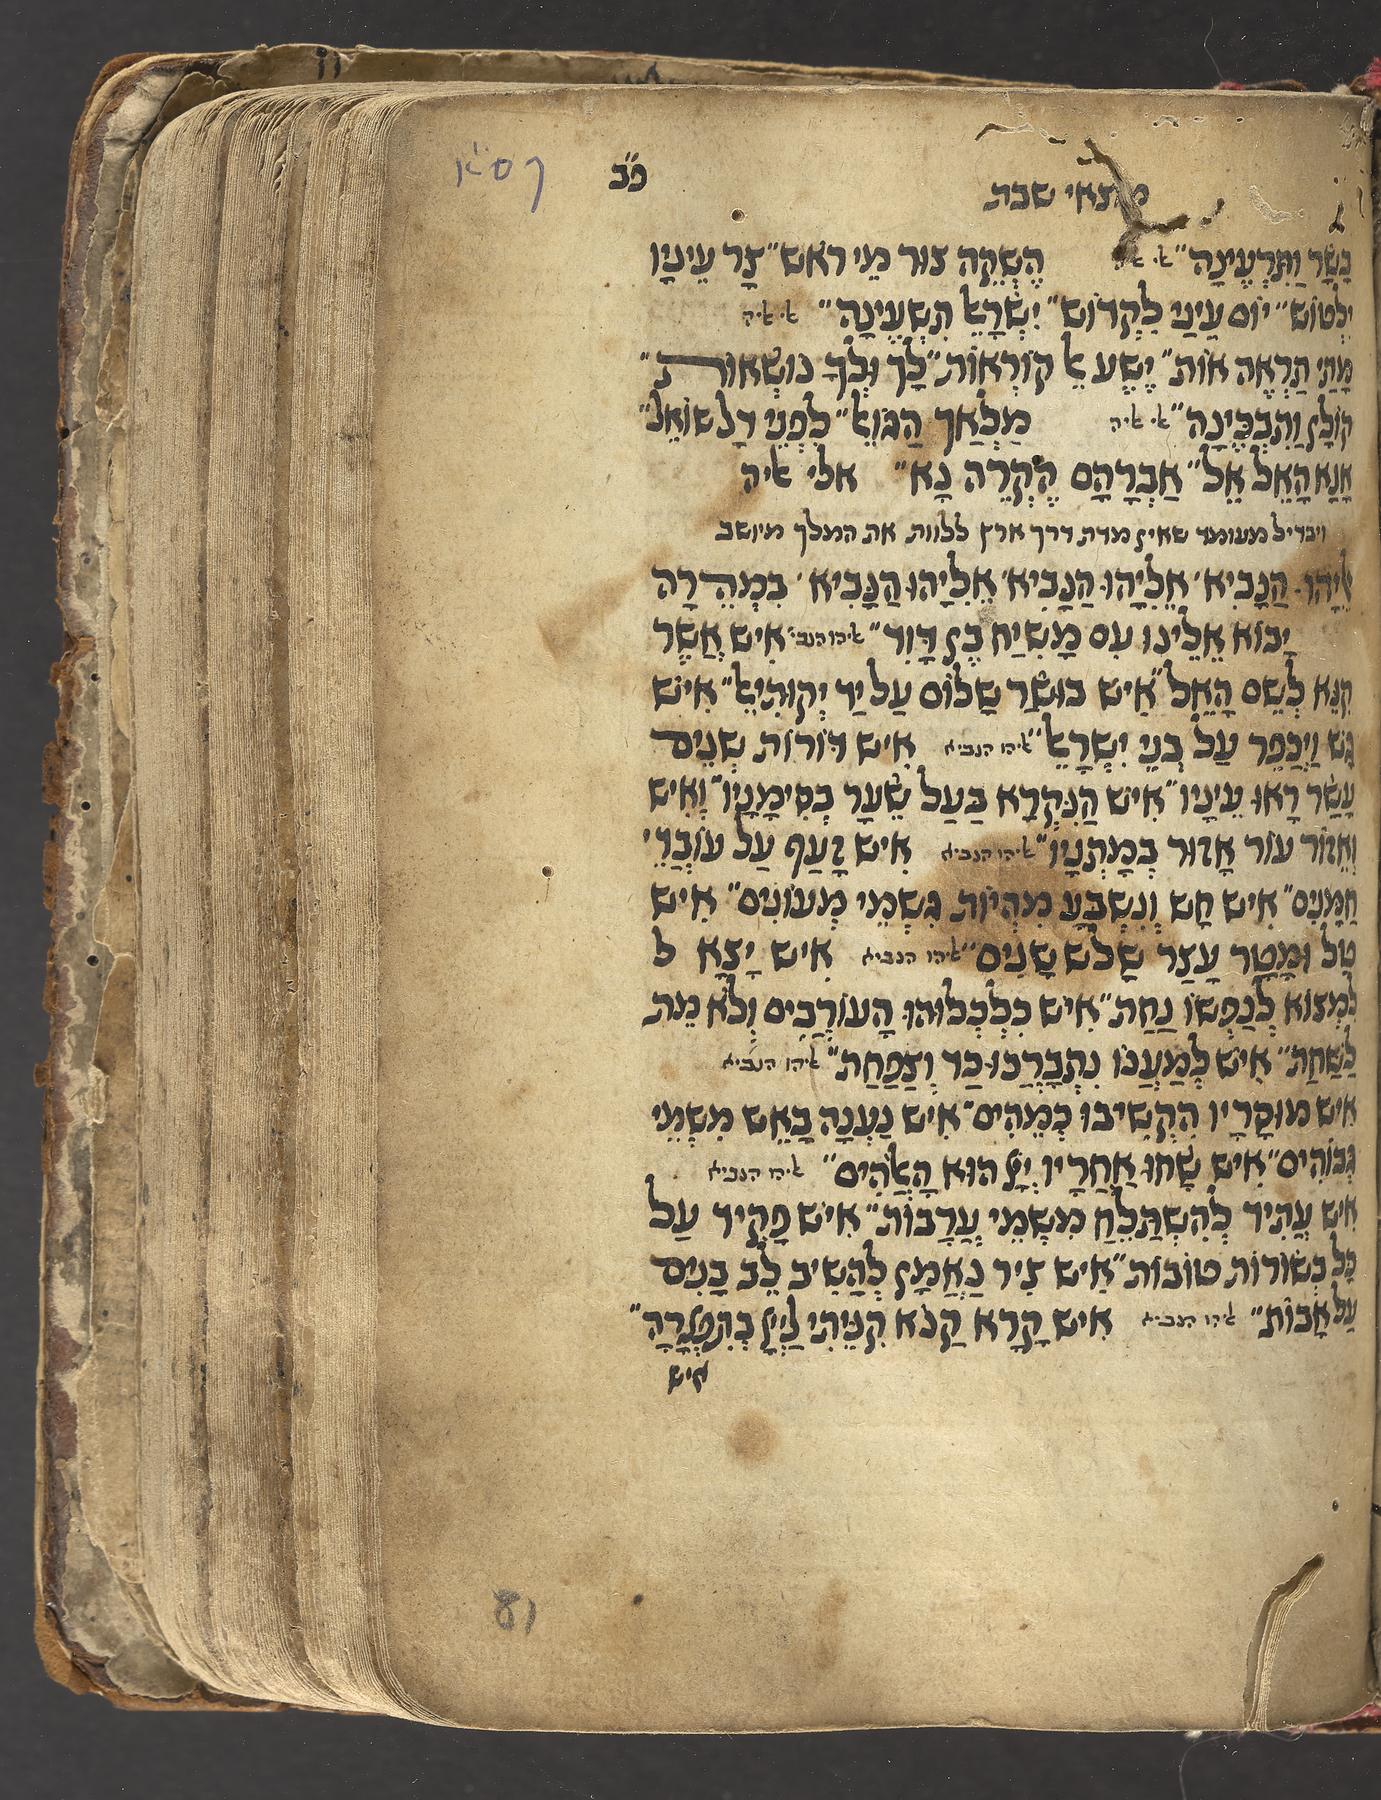 כ״ב
מוצאי שבת
בָשָׂר וַתִּרְעֶינָה״ הַשְׁקֵה צור מֵי ראש״ צָר עֵינָיו
יִלְטוֹש״ יוֹם עֵינַי לִקְדוֹש״ יִשְׂרָאֵל תִשְׁעֶינָה״ אי איה
מָתַי תַרְאֶה אוֹת״ יֶשַע אל קוֹרְאוֹת״ לָךְ וּלְךָ נוֹשְׂאוֹת״
קוֹלָן וַתִבְכֶּינָה״ אי איה מַלְאַךְ הַגּוֹאֵל״ לִפְנֵי דָל שוֹאֵל״
אָנָא הָאֵל אֵל״ אַבְרָהָם הַקְרֵה נָא״ אלי איה
ויבדיל מעומד שאין מדת דרך ארץ ללוות את המלך מיושב
אֵלִיָהוּ הַנָּבִיא׳ אֵלִיָהוּ הַנָבִיא׳ אֵלִיָהוּ הַנָּבִיא׳ בִמְהֵרָה
יָבוֹא אֵלֵינוּ עִם מָשִיחַ בֶּן דָּוִד״ אליהו הנבי׳ אִיש אֲשֶׁר
קִנֵּא לְשֵם הָאֵל״ אִיש בּוּשַׂר שָלוֹם עַל יַד יְקוּתִיאֵל״ אִיש
גָּש וַיְכַפֵּר עַל בְּנֵי יִשְׂרָאֵל״ אליהו הנביא אִיש דּוֹרוֹת שְנֵים
עָשָׂר רָאוּ עֵינָיו״ אִיש הַנִּקְרָא בַּעַל שֵׂעָר בְּסִימָנָיו״ וְאִיש
וְאֵזוֹר עוֹר אָזוּר בְּמָתְנָיו״ אליהו הנביא אִיש זָעַף עַל עוֹבְדֵי
חַמָּנִים״ אִיש חָש וְנִשְׁבָּע מִהְיוֹת גִּשְׁמֵי מְעוֹנִים״ אִיש
טַל וּמָטָר עָצַר שָלֹש שָנִים״ אליהו הנביא אִיש יָצָא ל
לִמְצוֹא לְנַפְשׁוֹ נַחַת״ אִיש כִּלְכְּלוּהוּ הָעוֹרְבִים וְלֹא מֵת
לַשַּׁחַת״ אִיש לְמַעֲנוֹ נִתְבָּרְכוּ כַּד וְצַפַּחַת״ אליהו הנביא
אִיש מוּסָרָיו הִקְשִיבוּ כְּמֵהִים״ אִיש נַעֲנָה בָאֵש מִשְּׁמֵי
גְבוֹהִים״ אִיש שָׂחוּ אַחֲרָיו יְיָ הוּא הָאֱלֹהִים״ אליהו הנביא
אִיש עָתִיד לְהִשְׁתַּלֵּחַ מִשְּׁמֵי עֲרָבוֹת״ אִיש פָּקִיד עַל
כָּל בְּשׂוֹרוֹת טוֹבוֹת״ אִיש צִיר נֶאֱמָן לְהָשִיב לֵב בָּנִים
עַל אָבוֹת״ אליהו הנביא אִיש קָרָא קַנֹּא קִנֵּיתִי לַייָ בְּתִפְאָרָה״
איש
81